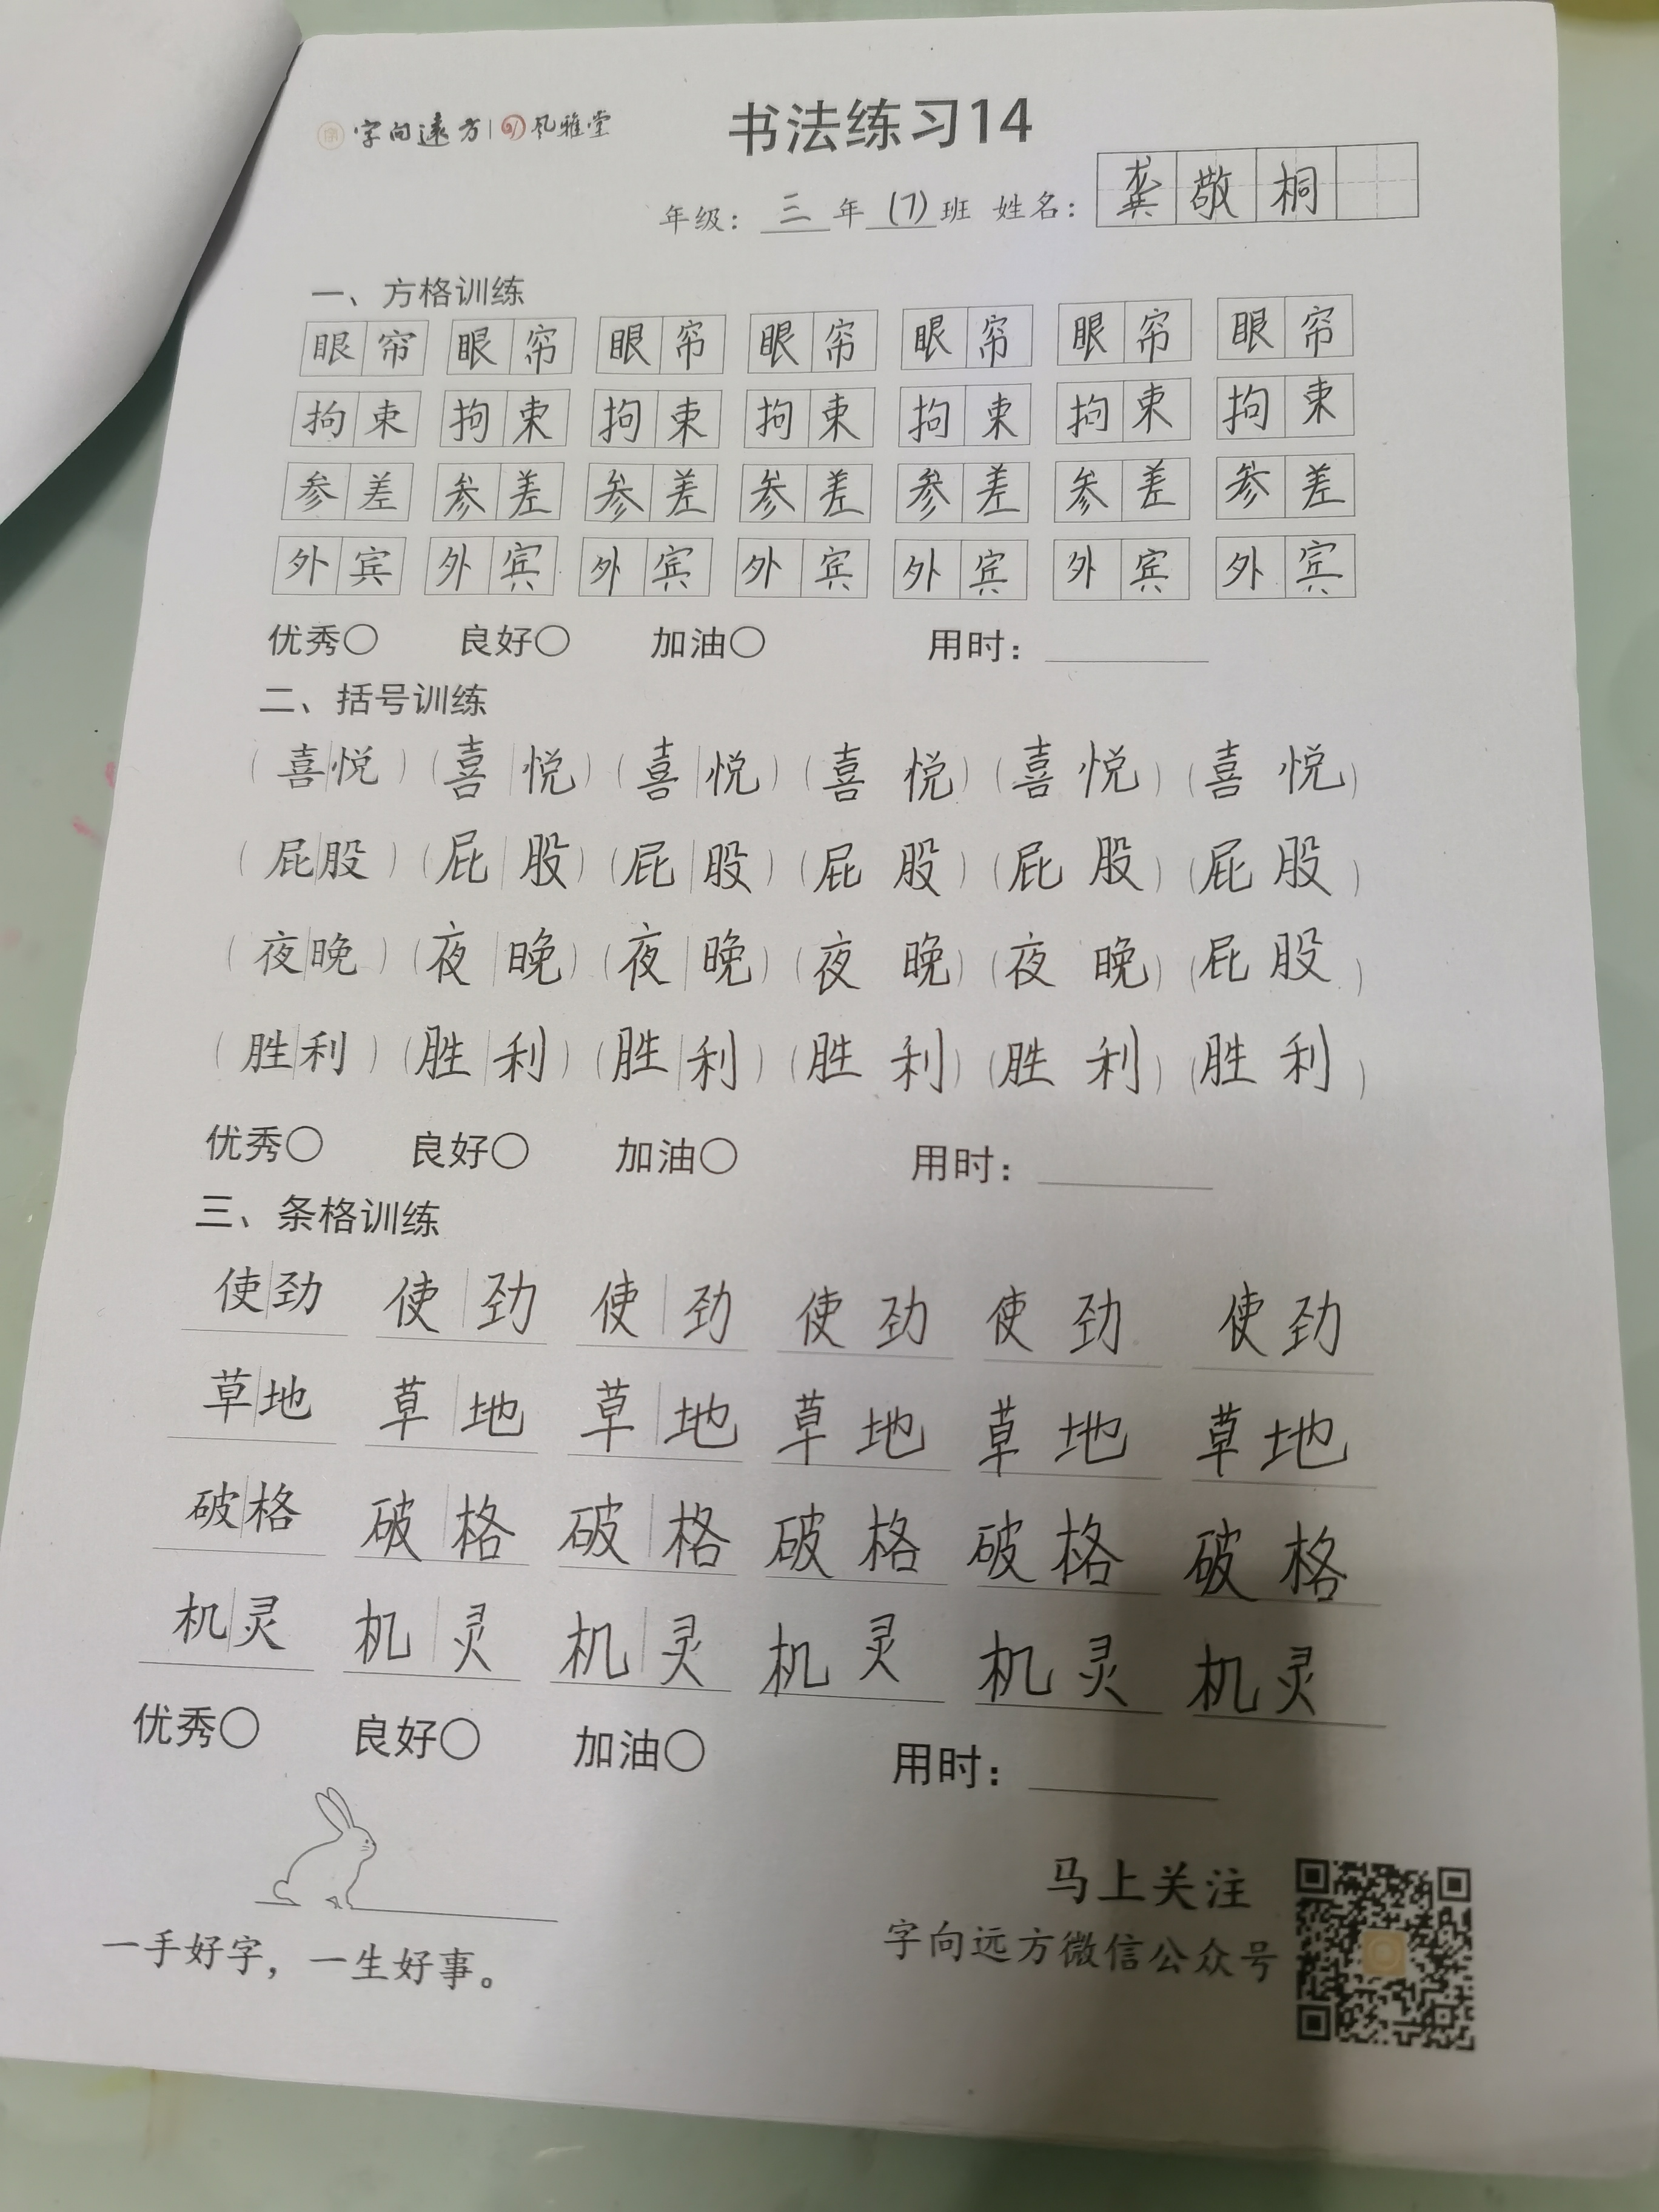 字向遠方 风雅堂
书法练习14
年级：三年(7)班 姓名：龚敬桐
一、方格训练
眼帘 眼帘 眼帘 眼帘 眼帘 眼帘 眼帘
拘束 拘束 拘束 拘束 拘束 拘束 拘束
参差 参差 参差 参差 参差 参差 参差
外宾 外宾 外宾 外宾 外宾 外宾 外宾
优秀○ 良好○ 加油○ 用时：
二、括号训练
（喜悦）（喜悦）（喜悦）（喜悦）（喜悦）（喜悦）
（屁股）（屁股）（屁股）（屁股）（屁股）（屁股）
（夜晚）（夜晚）（夜晚）（夜晚）（夜晚）（屁股）
（胜利）（胜利）（胜利）（胜利）（胜利）（胜利）
优秀○ 良好○ 加油○ 用时：
三、条格训练
使劲 使劲 使劲 使劲 使劲 使劲
草地 草地 草地 草地 草地 草地
破格 破格 破格 破格 破格 破格
机灵 机灵 机灵 机灵 机灵 机灵
优秀○ 良好○ 加油○ 用时：
一手好字，一生好事。
马上关注
字向远方微信公众号